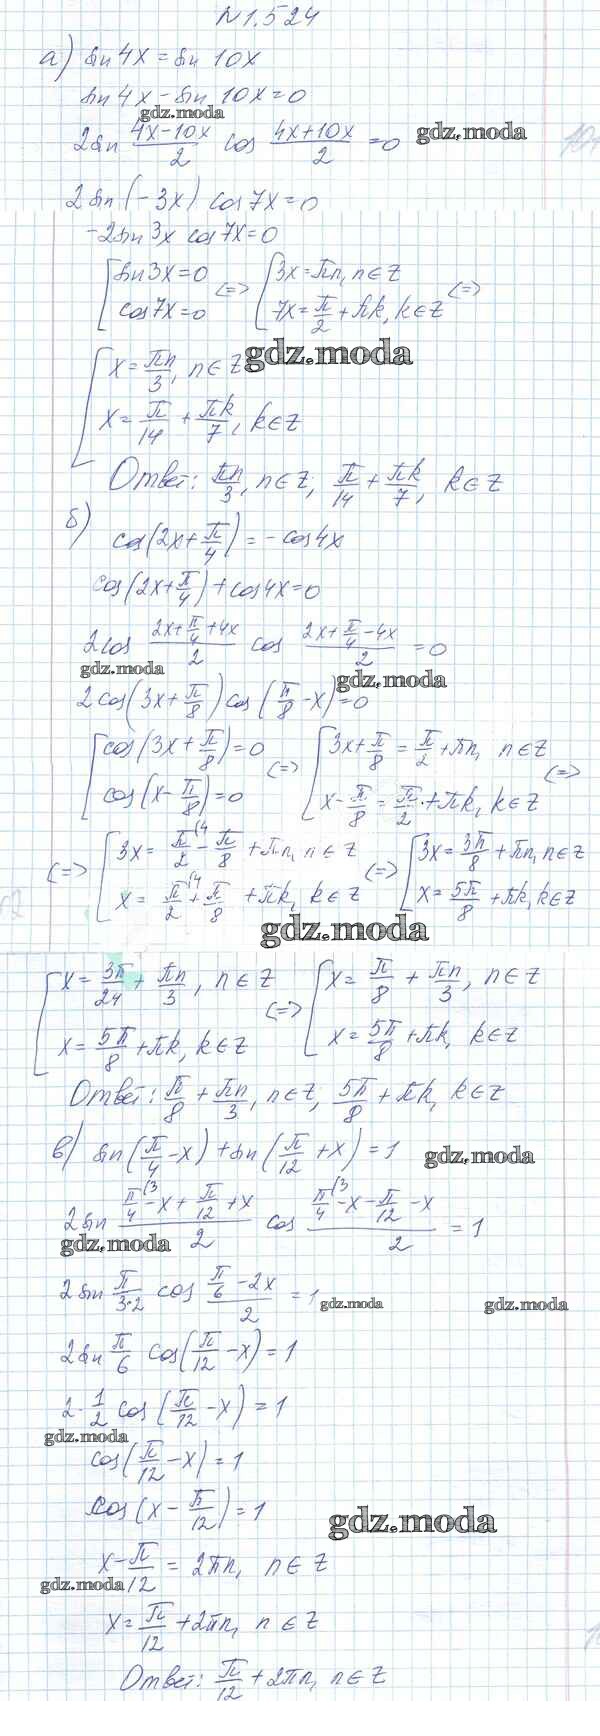 N 1.524
а) sin 4x = sin 10x
sin 4x - sin 10x = 0
gdz.moda
2 sin (4x-10x)/2 cos (4x+10x)/2 = 0 gdz.moda
2 sin (-3x) cos 7x = 0
-2 sin 3x cos 7x = 0
[ sin 3x = 0 <=> [ 3x = πn, n ∈ Z <=>
cos 7x = 0 7x = π/2 + πk, k ∈ Z
gdz.moda
[ x = πn/3, n ∈ Z
x = π/14 + πk/7, k ∈ Z
Ответ: πn/3, n ∈ Z; π/14 + πk/7, k ∈ Z
б)
cos(2x + π/4) = -cos 4x
cos(2x + π/4) + cos 4x = 0
2 cos (2x + π/4 + 4x)/2 cos (2x + π/4 - 4x)/2 = 0
gdz.moda gdz.moda
2 cos(3x + π/8) cos(π/8 - x) = 0
[ cos(3x + π/8) = 0 <=> [ 3x + π/8 = π/2 + πn, n ∈ Z <=>
cos(x - π/8) = 0 x - π/8 = π/2 + πk, k ∈ Z
<=> [ 3x = π/2 (4 - π/8 + πn, n ∈ Z <=> [ 3x = 3π/8 + πn, n ∈ Z
x = π/2 (4 + π/8 + πk, k ∈ Z x = 5π/8 + πk, k ∈ Z
gdz.moda
[ x = 3π/24 + πn/3, n ∈ Z <=> [ x = π/8 + πn/3, n ∈ Z
x = 5π/8 + πk, k ∈ Z x = 5π/8 + πk, k ∈ Z
Ответ: π/8 + πn/3, n ∈ Z; 5π/8 + πk, k ∈ Z
в) sin(π/4 - x) + sin(π/12 + x) = 1 gdz.moda
2 sin (π/4 (3 - x + π/12 + x)/2 cos (π/4 (3 - x - π/12 - x)/2 = 1
gdz.moda
2 sin π/3·2 cos (π/6 - 2x)/2 = 1 gdz.moda gdz.moda
2 sin π/6 cos(π/12 - x) = 1
2 · 1/2 cos(π/12 - x) = 1
gdz.moda
cos(π/12 - x) = 1
cos(x - π/12) = 1
gdz.moda
x - π/12 = 2πn, n ∈ Z
gdz.moda
x = π/12 + 2πn, n ∈ Z
Ответ: π/12 + 2πn, n ∈ Z